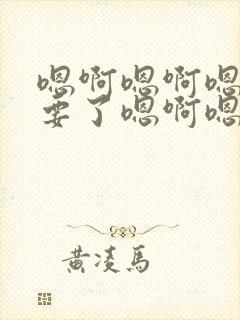 嗯啊嗯啊嗯
要了嗯啊嗯
黄凌马